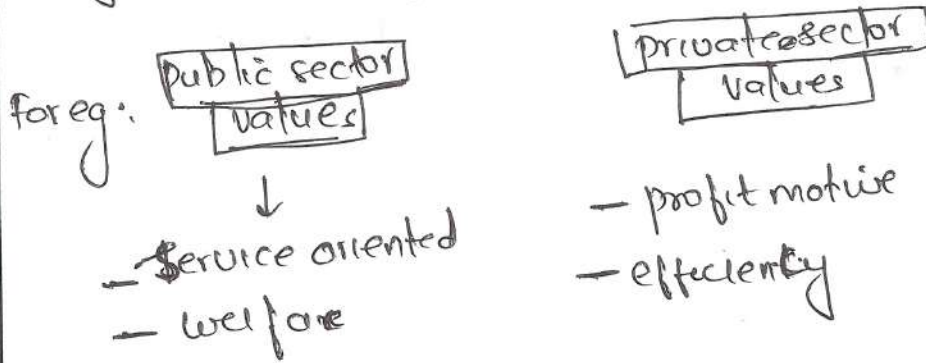 for eg:
public sector
values
- Service oriented
- welfare
private sector
values
- profit motive
- efficiently